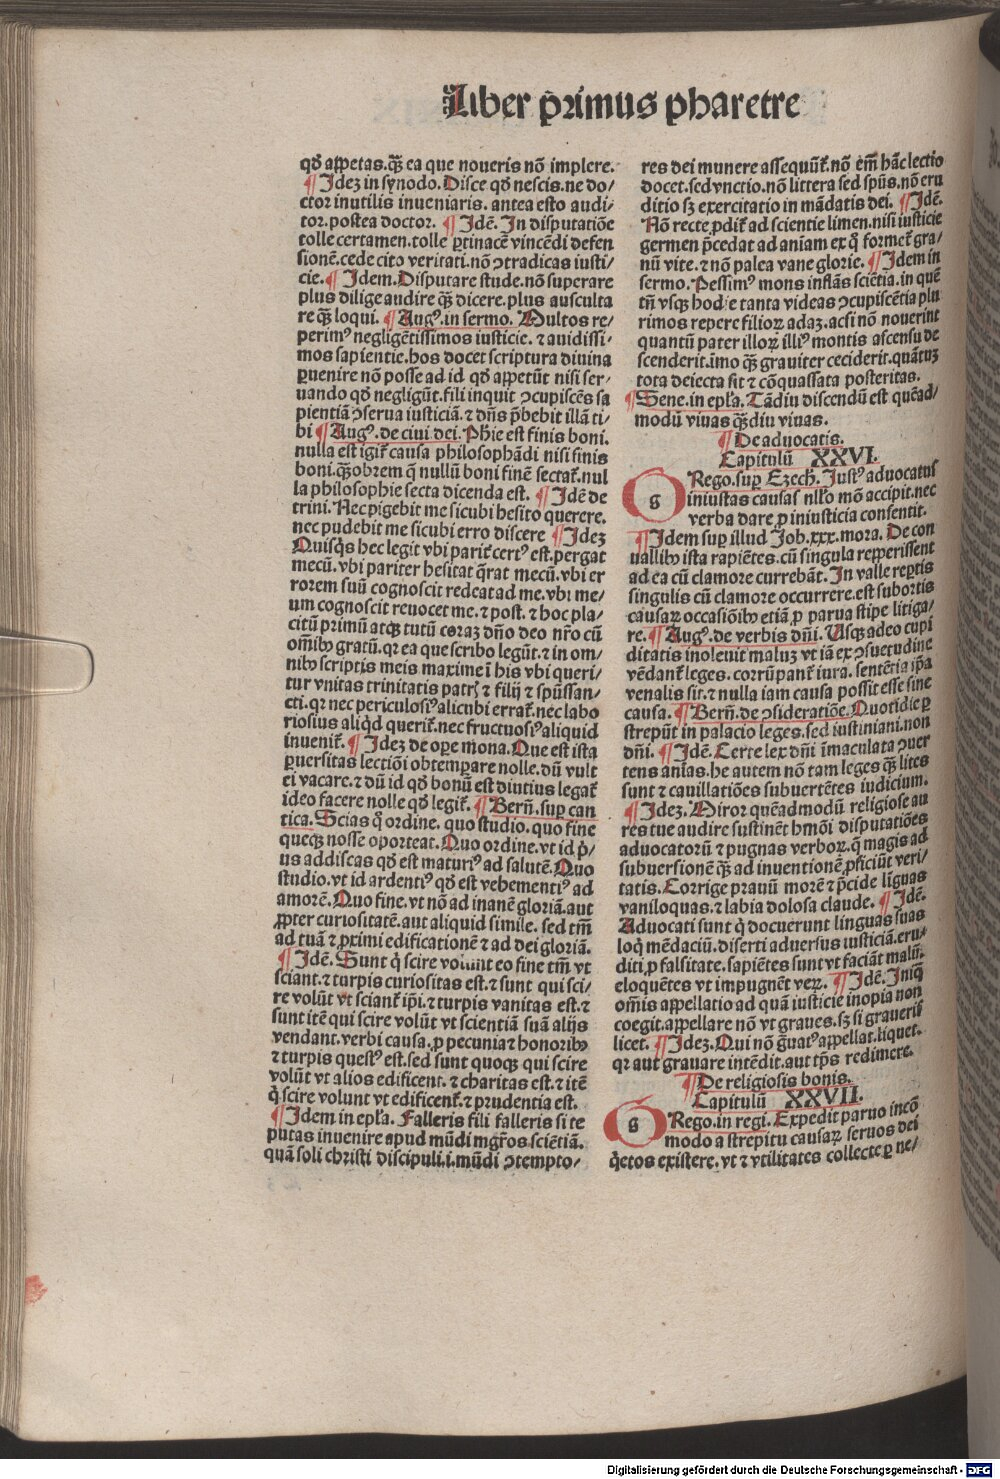 Liber p̄rimus pharetre
qđ appetas.q̄ȝ ea que noueris nō implere.
¶ Idez in synodo. Disce qđ nescis.ne do/
ctor inutilis inueniaris. antea esto audi/
tor.postea doctor. ¶ Idē. In disputatiōe
tolle certamen.tolle ꝑtinacē vincēdi defen
sionē.cede cito veritati.nō ꝯtradicas iusti/
cie. ¶ Idem. Disputare stude.nō superare
plus dilige audire q̄ȝ dicere.plus ausculta
re q̄ȝ loqui. ¶ Augꝰ.in sermo. Multos re/
perimꝰ negligētissimos iusticie. ⁊ auidissi/
mos sapientie.hos docet scriptura diuina
ꝑuenire nō posse ad id qđ appetūt nisi ser/
uando qđ negligūt.fili inquit ꝯcupiscēs sa
pientiā ꝯserua iusticiā.⁊ dn̄s p̄bebit illā ti/
bi ¶ Augꝰ.de ciui dei. Phie est finis boni.
nulla est igit̄ causa philosophādi nisi finis
boni.q̄ȝobrem q̄ nullū boni finē sectat̄.nul
la philosophie secta dicenda est. ¶ Idē de
trini. Nec pigebit me sicubi hesito querere.
nec pudebit me sicubi erro discere ¶ Idez
Quisq̇s hec legit vbi parit̄ certꝰ est.pergat
mecū.vbi pariter hesitat q̄rat mecū.vbi er
rorem suū cognoscit redeat ad me.vbi me/
um cognoscit reuocet me.⁊ post. ⁊ hoc pla/
citū primū atqꝫ tutū coraz dn̄o deo nr̄o cū
om̄ibꝫ gratū.qꝛ ea que scribo legūt.⁊ in om/
nibꝫ scriptis meis maxime ī his vbi queri/
tur vnitas trinitatis patrꝭ ⁊ filij ⁊ spūssan/
cti.qꝛ nec periculosiꝰ alicubi errat̄.nec labo
riosius aliq̇d querit̄.nec fructuosiꝰ aliquid
inuenit̄. ¶ Idez de oꝑe mona. Que est ista
ꝑuersitas lectiōi obtemperare nolle.dū vult
ei vacare.⁊ dū id qđ bonū est diutius legat̄
ideo facere nolle qđ legit̄. ¶ Bern̄.suꝑ can
tica. Scias q̇ ordine. quo studio.quo fine
queqꝫ nosse oporteat. Quo ordine.vt id p̄/
us addiscas qđ est maturiꝰ ad salutē. Quo
studio.vt id ardentiꝰ qđ est vehementiꝰ ad
amorē. Quo fine.vt nō ad inanē gloriā.aut
ꝓpter curiositatē.aut aliquid simile. sed tm̄
ad tuā ⁊ ꝓximi edificationē ⁊ ad dei gloriā.
¶ Idē. Sunt q̇ scire volunt eo fine tm̄ vt
sciant.⁊ turpis curiositas est.⁊ sunt qui sci/
re volūt vt sciant̄ ip̄i.⁊ turpis vanitas est.⁊
sunt itē qui scire volūt vt scientiā suā alijs
vendant.verbi causa.ꝓ pecunia ⁊ honoribꝫ
⁊ turpis questꝰ est.sed sunt quoqꝫ qui scire
volūt vt alios edificent.⁊ charitas est.⁊ itē
q̇ scire volunt vt edificent̄.⁊ prudentia est.
¶ Idem in epl̄a. Falleris fili falleris si te
putas inuenire apud mūdi mgr̄os sciētiā.
quā soli christi discipuli.i.mūdi ꝯtempto/
res dei munere assequūt̄.nō em̄ hāc lectio
docet.sed vnctio.nō littera sed spūs.nō eru
ditio sꝫ exercitatio in mādatis dei. ¶ Idē.
Nō recte ꝓdit̄ ad scientie limen.nisi iusticie
germen p̄cedat ad aniam ex q̇ formet̄ gra/
nū vite.⁊ nō palea vane glorie. ¶ Idem in
sermo. Pessimꝰ mons inflās sciētia.in quē
tn̄ vsqꝫ hodie tanta videas ꝯcupiscētia plu
rimos repere filioꝝ adaz.acsi nō nouerint
quantū pater illoꝝ illiꝰ montis ascensu de
scenderit.imo q̄ȝ grauiter ceciderit.quātuꝫ
tota deiecta sit ⁊ cōquassata posteritas.
¶ Sene.in epl̄a. Tādiu discendū est quēad/
modū viuas q̄ȝdiu viuas.
¶ De aduocatis.
Capitulū XXVI.
GRego.suꝑ Ezech̄. Iustꝰ aduocatus
iniustas causas nl̄lo mō accipit.nec
verba dare ꝓ iniusticia consentit.
¶ Idem suꝑ illud Iob.xxx.mora. De con
uallibꝫ ista rapiētes.cū singula repperissent
ad ea cū clamore currebāt. In valle reꝑtis
singulis cū clamore occurrere.est subortis
causaꝝ occasiōibꝫ etiā ꝓ parua stipe litiga/
re. ¶ Augꝰ.de verbis dn̄i. Usqꝫadeo cupi
ditatis inoleuit maluꝫ vt iā ex ꝯsuetudine
vēdant̄ leges.corrūpant̄ iura. sentētia ip̄a
venalis sit.⁊ nulla iam causa possit esse sine
causa. ¶ Bern̄.de ꝯsideratiōe. Quotidie ꝑ
strepūt in palacio leges.sed iustiniani.non
dn̄i. ¶ Idē. Certe lex dn̄i īmaculata ꝯuer
tens aīas.he autem nō tam leges q̄ȝ lites
sunt ⁊ cauillatiōes subuertētes iudicium.
¶ Idez. Miroꝛ quēadmodū religiose au
res tue audire sustinēt hm̄oi disputatiōes
aduocatorū ⁊ pugnas verboꝝ.q̄ magis ad
subuersionē q̄ȝ ad inuentionē ꝓficiūt veri/
tatis. Corrige prauū morē ⁊ p̄cide līguas
vaniloquas.⁊ labia dolosa claude. ¶ Idē.
Aduocati sunt q̇ docuerunt linguas suas
loq̇ mēdaciū.diserti aduersus iusticiā.eru/
diti ꝓ falsitate.sapiētes sunt vt faciāt malū.
eloquētes vt impugnēt veꝝ. ¶ Idē. Iniq̄
om̄is appellatio ad quā iusticie inopia non
coegit.appellare nō vt graues.sꝫ si graueris
licet. ¶ Idez. Qui nō gͣuatꝰ appellat.liquet.
qꝛ aut grauare intēdit.aut tp̄s redimere.
¶ De religiosis bonis.
Capitulū XXVII.
GRego.in regi. Expedit paruo incō
modo a strepitu causaꝝ seruos dei
q̇etos existere.vt ⁊ vtilitates collecte ꝑ ne/
Digitalisierung gefördert durch die Deutsche Forschungsgemeinschaft - DFG